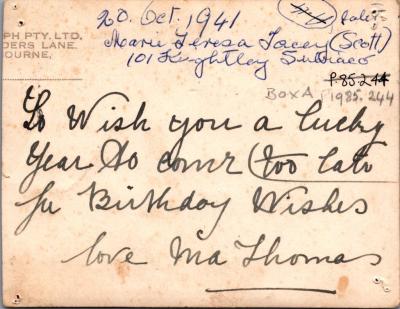 PH PTY. LTD.
DERS LANE.
OURNE,
20. Oct. 1941
Marie Teresa Tacey (Scott)
101 Keightley Subiaco
P.85.244
BOX A P1985.244
To Wish you a lucky
Year to come (too late
for Birthday Wishes
love Ma Thomas